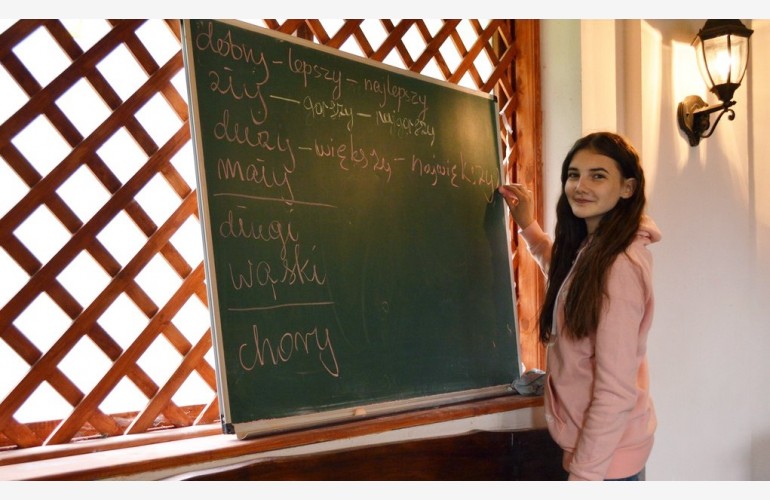 dobry - lepszy - najlepszy
zły - gorszy - najgorszy
duży - większy - największy
mały
długi
wąski
chory